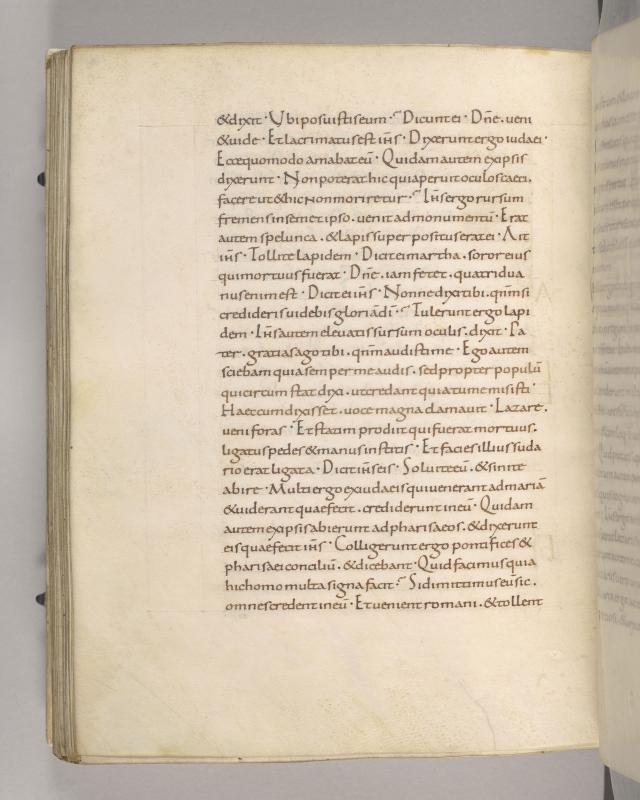 &dixit · Ubi posuistis eum · Dicunt ei · Dn̄e · veni
& uide · Et lacrimatus est ih̄s · Dixerunt ergo iudaei ·
Ecce quomodo amabat eū · Quidam autem ex ipsis
dixerunt · Non poterat hic qui aperuit oculos caeci,
facere ut & hic non moriretur · Ih̄s ergo rursum
fremens in semet ipso · uenit ad monumentū · Erat
autem spelunca · & lapis super positus erat ei · Ait
ih̄s · Tollite lapidem · Dicit ei martha · soror eius
qui mortuus fuerat · Dn̄e · iam fetet · quatridua
nus enim est · Dicit ei ih̄s · Nonne dixi tibi · qn̄m si
credideris uidebis gloriā dī · Tulerunt ergo lapi
dem · Ih̄s autem eleuatis sursum oculis · dixit · Pa
ter · gratias ago tibi · qn̄m audisti me · Ego autem
sciebam quia semper me audis · sed propter populū
qui circum stat dixi · ut credant quia tu me misisti ·
Haec cum dixisset · uoce magna clamauit · Lazare ·
ueni foras · Et statim prodiit qui fuerat mortuus ·
ligatus pedes & manus institis · Et facies illius suda
rio erat ligata · Dicit ih̄s eis · Soluite eū · & sinite
abire · Multi ergo ex iudaeis qui uenerant ad mariā
& uiderant quae fecit · crediderunt in eū · Quidam
autem ex ipsis abierunt ad pharisaeos · & dixerunt
eis quae fecit ih̄s · Colligerunt ergo pontifices &
pharisaei conciliū · & dicebant · Quid facimus quia
hic homo multa signa facit · Si dimittimus eū sic ·
omnes credent in eū · Et uenient romani · & tollent